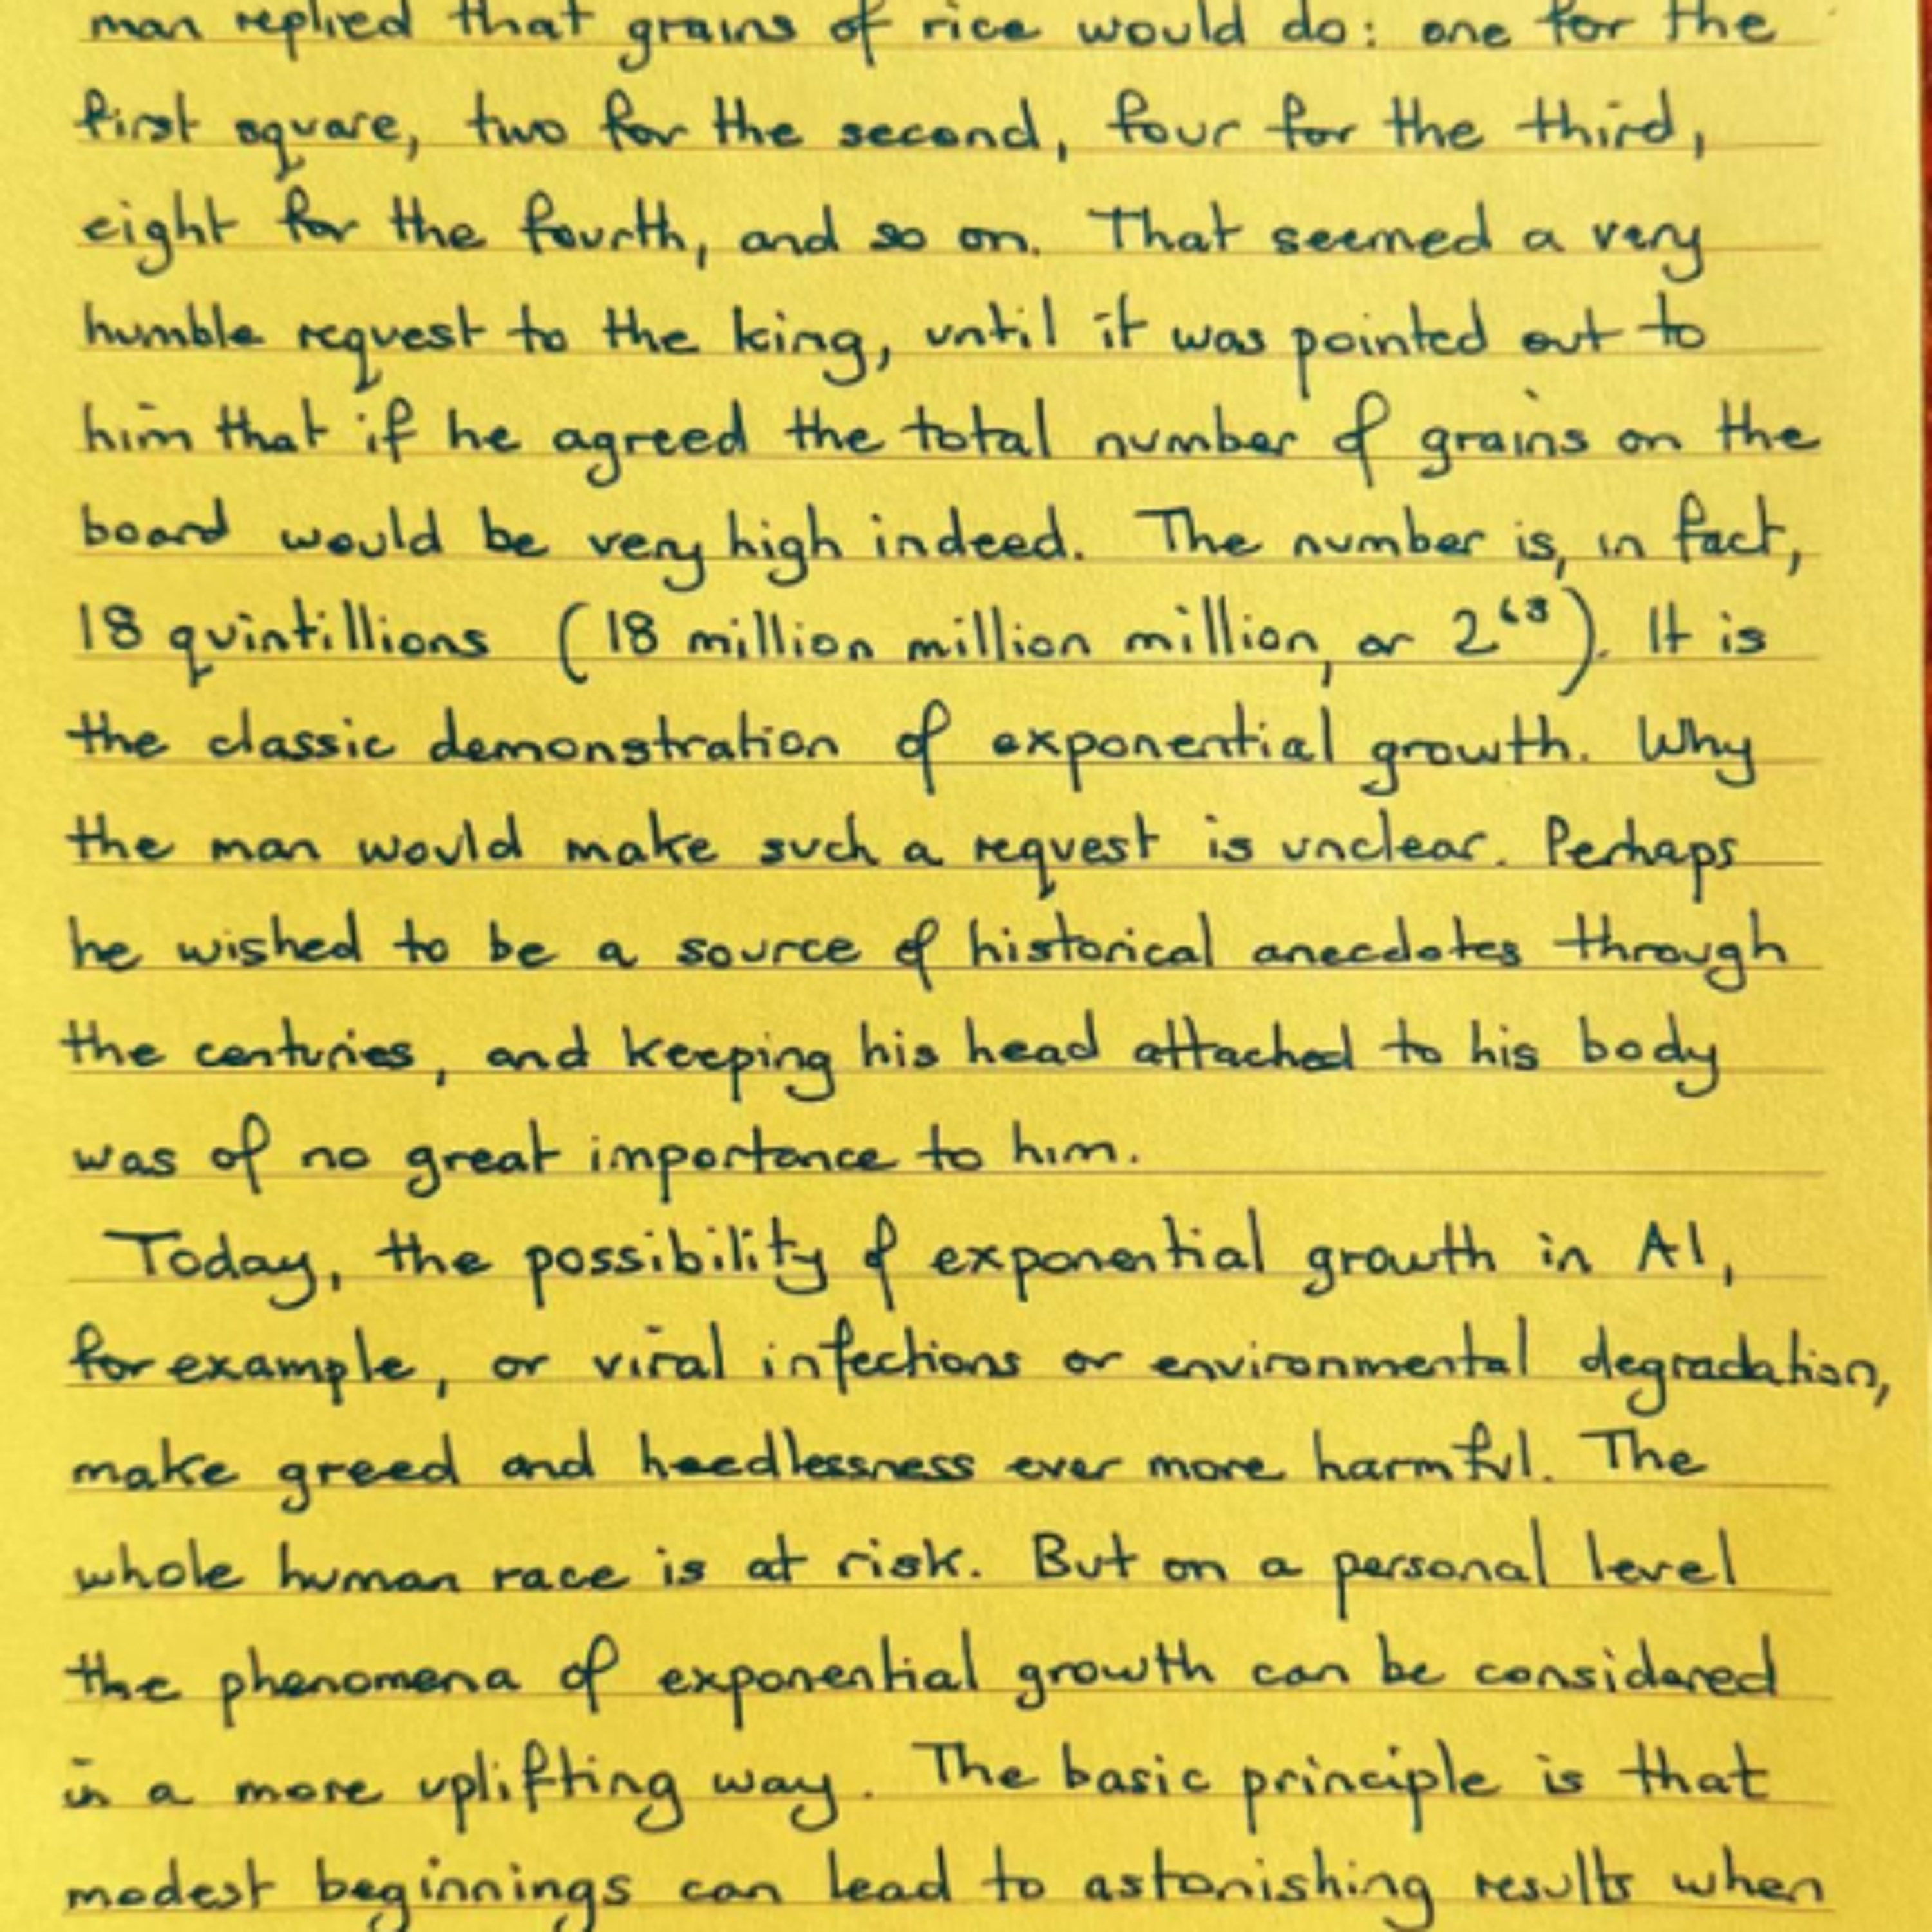 man replied that grains of rice would do: one for the
first square, two for the second, four for the third,
eight for the fourth, and so on. That seemed a very
humble request to the king, until it was pointed out to
him that if he agreed the total number of grains on the
board would be very high indeed. The number is, in fact,
18 quintillions (18 million million million, or 2⁶³). It is
the classic demonstration of exponential growth. Why
the man would make such a request is unclear. Perhaps
he wished to be a source of historical anecdotes through
the centuries, and keeping his head attached to his body
was of no great importance to him.
Today, the possibility of exponential growth in AI,
for example, or viral infections or environmental degradation,
make greed and heedlessness ever more harmful. The
whole human race is at risk. But on a personal level
the phenomena of exponential growth can be considered
in a more uplifting way. The basic principle is that
modest beginnings can lead to astonishing results when